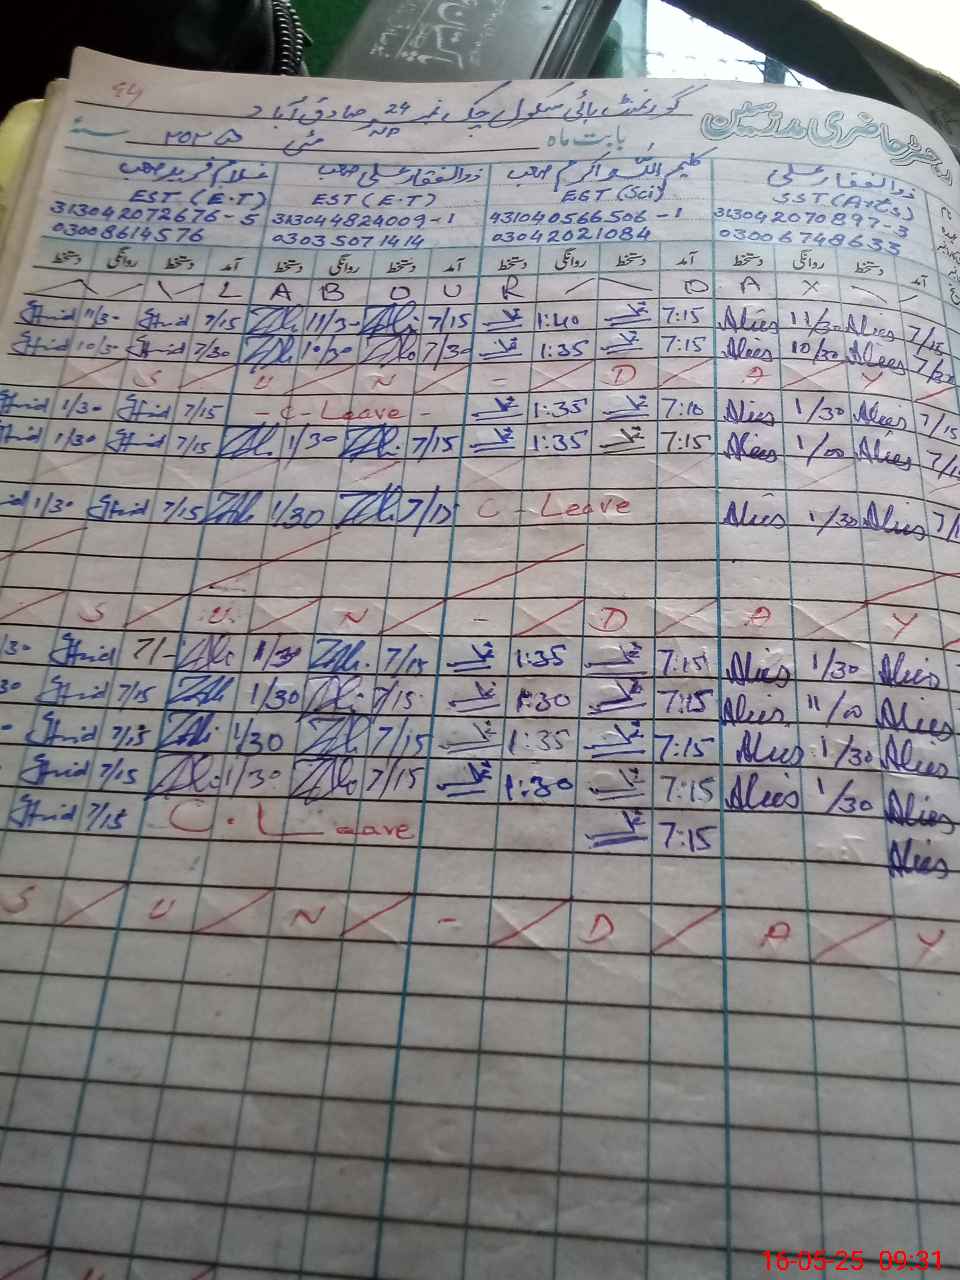 گورنمنٹ ہائی سکول چک نمبر 24 NP صادق آباد
رجسٹر حاضری مدرسین بابت ماہ مئی ۲۰۲۵ سنہ
ذوالفقار علی کلیم اللہ اکرم صاحب ذوالفقار علی صاحب غلام فرید صاحب
SST (Arts) EST (Sci) EST (E.T) EST (E.T)
313042070897-3 431040566506-1 313044824009-1 313042072676-5
03006748633 03042021084 03035071414 03008614576
آمد دستخط روانگی دستخط آمد دستخط روانگی دستخط آمد دستخط روانگی دستخط آمد دستخط روانگی دستخط
L A B O U R D A Y
11/30 7/15 11/30 7/15 1:40 7:15 Alies 11/30 Alies 7/15
10/30 7/30 10/30 7/30 1:35 7:15 Alies 10/30 Alies 7/30
S U N - D A Y
1/30 7/15 - C - Leave - 1:35 7:10 Alies 1/30 Alies 7/15
1/30 7/15 1/30 7/15 1:35 7:15 Alies 1/00 Alies 7/15
1/30 7/15 1/30 7/15 C - Leave Alies 1/30 Alies 7/
S U N - D A Y
/30 7/- 1/30 7/15 1:35 7:15 Alies 1/30 Alies
30 7/15 1/30 7/15 1:30 7:15 Alies 11/00 Alies
7/15 1/30 7/15 1:35 7:15 Alies 1/30 Alies
7/15 1/30 7/15 1:30 7:15 Alies 1/30 Alies
7/15 C. Leave 7:15 Alies
S U N - D A Y
16-05-25 09:31